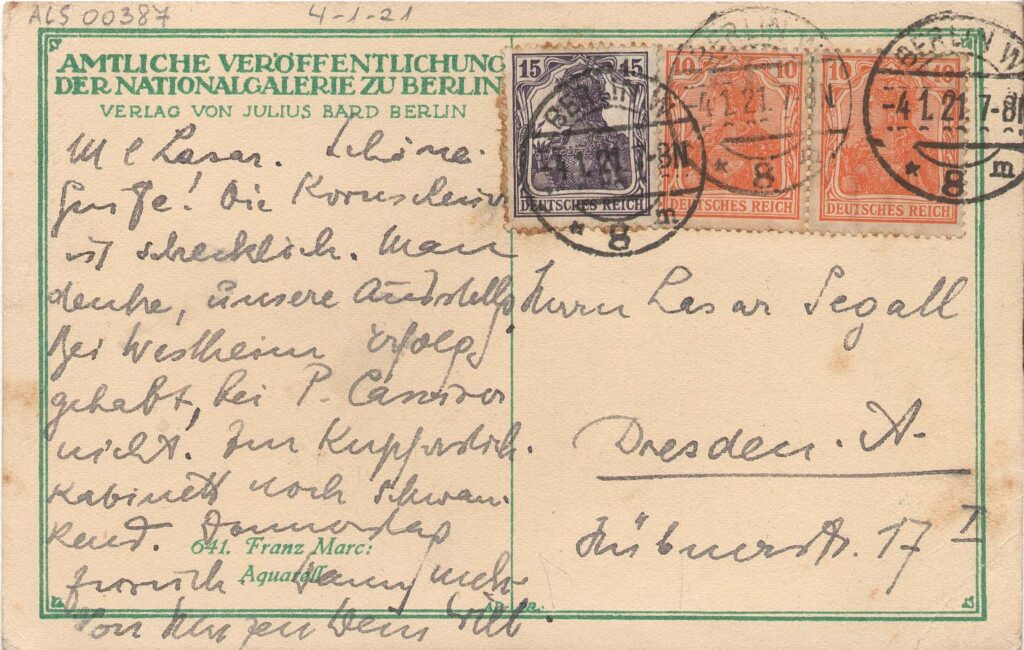 ALS 00387 4-1-21
AMTLICHE VERÖFFENTLICHUNG
DER NATIONALGALERIE ZU BERLIN
VERLAG VON JULIUS BARD BERLIN
15 15
DEUTSCHES REICH
10 10
DEUTSCHES REICH
10 10
DEUTSCHES REICH
BERLIN W
-4.1.21.7-8N
* 8 m
BERLIN W
-4.1.21. 8N
* 8
BERLIN W
-4.1.21.7-8N
* 8 m
M l Lasar. Schöne
Grüße! Die
ist schrecklich. Man
denke, unsere Ausstellg
bei Westheim Erfolg
gehabt, bei P. Cassirer
nicht. Im Kupferstich.
Kabinett noch schwan-
kend. Donnerstag
641. Franz Marc:
Aquarell
mehr
Von Herzen Dein Will
Herrn Lasar Segall
Dresden. A.
Hübnerstr. 17 I